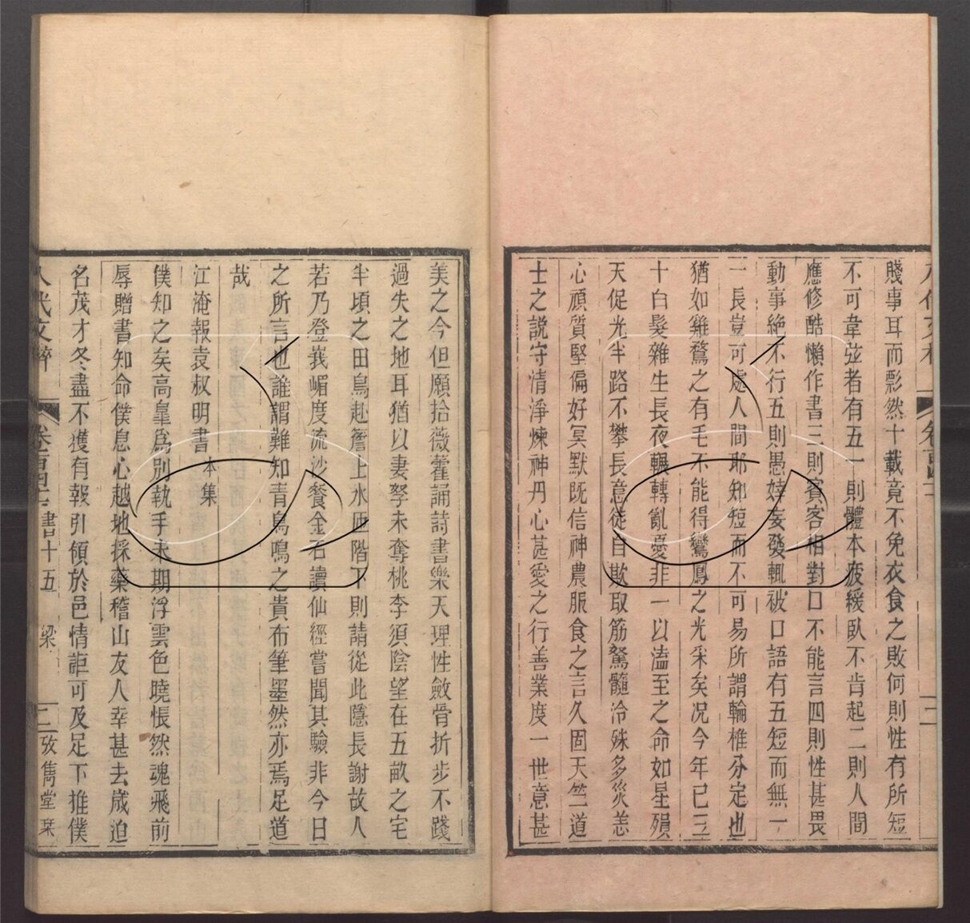 賤事耳而影然十載竟不免衣食之敗何則性有所短
不可韋弦者有五一則體本疲緩臥不肯起二則人間
應修酷懶作書三則賓客相對口不能言四則性甚畏
動事絕不行五則愚婞妄發輒被口語有五短而無一
一長豈可處人間耶知短而不可易所謂輪椎分定也
猶如雞鶩之有毛不能得鸞鳳之光采矣况今年已三
十白髮雜生長夜輾轉亂憂非一以溘至之命如星殞
天促光半路不攀長意徒自欺取筋駑髓冷殊多災恙
心頑質堅偏好冥默既信神農服食之言久固天竺道
士之説守清淨煉神丹心甚愛之行善業度一世意甚
美之今但願拾薇藿誦詩書樂天理性斂骨折步不踐
過失之地耳猶以妻孥未奪桃李須陰望在五畝之宅
半頃之田鳥赴簷上水匝階下則請從此隱長謝故人
若乃登峩嵋度流沙餐金石讀仙經嘗聞其驗非今日
之所言也誰謂難知青鳥鳴之貴布筆墨然亦焉足道
哉
江淹報袁叔明書 本集
僕知之矣高皐爲別執手未期浮雲色曉悵然魂飛前
辱贈書知命僕息心越地採藥稽山友人幸甚去歲迫
名茂才冬盡不獲有報引領於邑情詎可及足下推僕
八代文粹 卷 書十五 梁 二 攷雋堂栞